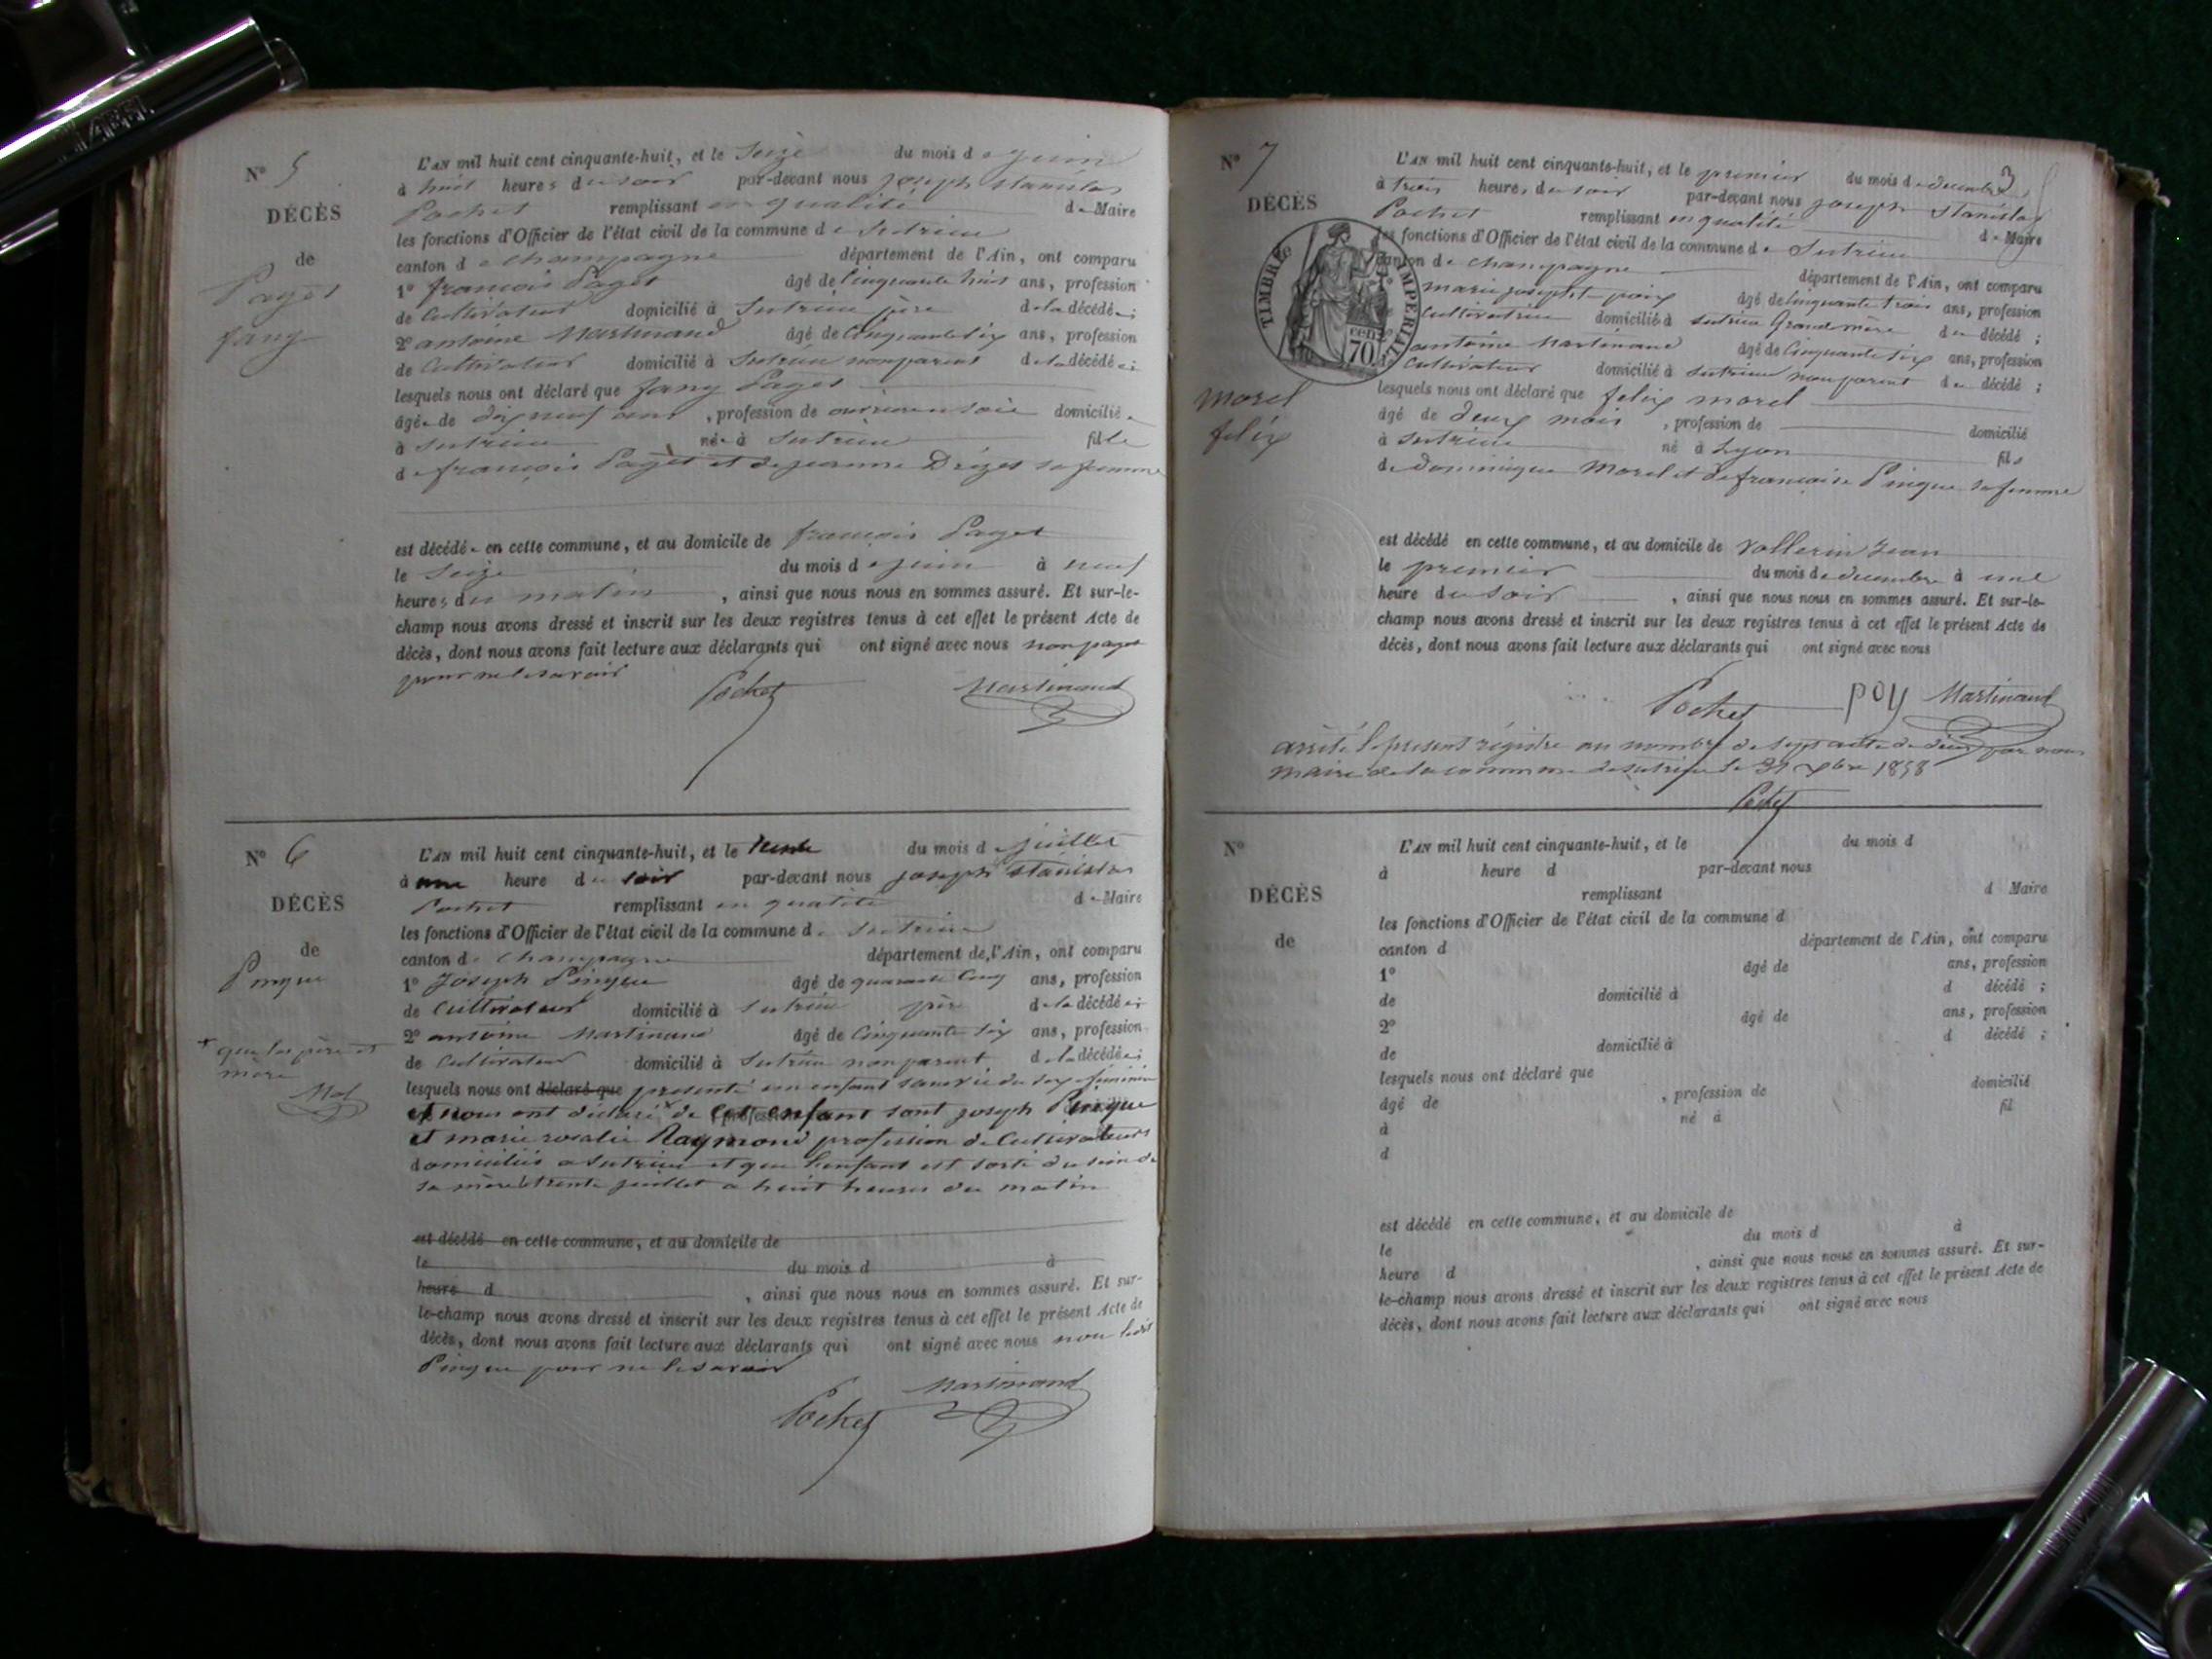 N° 5
DÉCÈS
de
Paget
fany
L'AN mil huit cent cinquante-huit, et le Seize du mois de juin
à huit heures du soir par-devant nous joseph stanislas
Pochet remplissant en qualité de Maire
les fonctions d'Officier de l'état civil de la commune de Sutrieu
canton de champagne département de l'Ain, ont comparu
1° françois Paget âgé de Cinquante huit ans, profession
de Cultivateur domicilié à Sutrieu père de la décédée;
2° antoine Martinand âgé de Cinquante six ans, profession
de Cultivateur domicilié à Sutrieu non parent de la décédée;
lesquels nous ont déclaré que fany Paget
âgée de dix neuf ans, profession de ouvrière en soie domiciliée
à Sutrieu née à Sutrieu fille
de françois Paget et de jeanne Drizet sa femme
est décédée en cette commune, et au domicile de françois Paget
le Seize du mois de juin à neuf
heures du matin, ainsi que nous nous en sommes assuré. Et sur-le-
champ nous avons dressé et inscrit sur les deux registres tenus à cet effet le présent Acte de
décès, dont nous avons fait lecture aux déclarants qui ont signé avec nous non paget
pour ne le savoir
Pochet Martinand
N° 6
DÉCÈS
de
Pingue
* que les père et
mère
L'AN mil huit cent cinquante-huit, et le trente du mois de juillet
à une heure du soir par-devant nous joseph stanislas
Pochet remplissant en qualité de Maire
les fonctions d'Officier de l'état civil de la commune de Sutrieu
canton de Champagne département de l'Ain, ont comparu
1° Joseph Pingue âgé de quarante Cinq ans, profession
de Cultivateur domicilié à Sutrieu père de la décédée;
2° antoine Martinand âgé de Cinquante six ans, profession
de Cultivateur domicilié à Sutrieu non parent de la décédée;
lesquels nous ont déclaré que presenté un enfant sans vie du sexe féminin
et nous ont déclaré * de Cet enfant sont joseph Pingue
et marie rosalie Raymond profession de Cultivateurs
domiciliés a Sutrieu et que l'enfant est sorti du sein de
sa mère le trente juillet a huit heures du matin
est décédé en cette commune, et au domicile de
le du mois d à
heure d , ainsi que nous nous en sommes assuré. Et sur-
le-champ nous avons dressé et inscrit sur les deux registres tenus à cet effet le présent Acte de
décès, dont nous avons fait lecture aux déclarants qui ont signé avec nous non ledit
Pingue pour ne le savoir
Pochet Martinand
N° 7
DÉCÈS
TIMBRE IMPÉRIAL
70 cen
morel
felix
L'AN mil huit cent cinquante-huit, et le premier du mois de decembre
à trois heures du soir par-devant nous joseph stanislas
Pochet remplissant en qualité de Maire
les fonctions d'Officier de l'état civil de la commune de Sutrieu
canton de champagne département de l'Ain, ont comparu
marie josephte âgé de cinquante trois ans, profession
Cultivatrice domicilié à Sutrieu Grand mère du décédé;
antoine Martinand âgé de Cinquante six ans, profession
Cultivateur domicilié à Sutrieu non parent du décédé;
lesquels nous ont déclaré que felix morel
âgé de deux mois, profession de domicilié
à Sutrieu né à Lyon fils
de Dominique Morel et de francoise Pingue sa femme
est décédé en cette commune, et au domicile de Vollerin jean
le premier du mois de decembre à une
heure du soir, ainsi que nous nous en sommes assuré. Et sur-le-
champ nous avons dressé et inscrit sur les deux registres tenus à cet effet le présent Acte de
décès, dont nous avons fait lecture aux déclarants qui ont signé avec nous
Pochet poy Martinand
arrêté le present régistre au nombre de sept acte de décès par nous
maire de la commune de Sutrieu le 31 xbre 1858
Pochet
N°
DÉCÈS
de
L'AN mil huit cent cinquante-huit, et le du mois d
à heure d par-devant nous
remplissant d Maire
les fonctions d'Officier de l'état civil de la commune d
canton d département de l'Ain, ont comparu
1° âgé de ans, profession
de domicilié à d décédé;
2° âgé de ans, profession
de domicilié à d décédé;
lesquels nous ont déclaré que
âgé de , profession de domicilié
à né à fil
d
est décédé en cette commune, et au domicile de
le du mois d à
heure d , ainsi que nous nous en sommes assuré. Et sur-
le-champ nous avons dressé et inscrit sur les deux registres tenus à cet effet le présent Acte de
décès, dont nous avons fait lecture aux déclarants qui ont signé avec nous